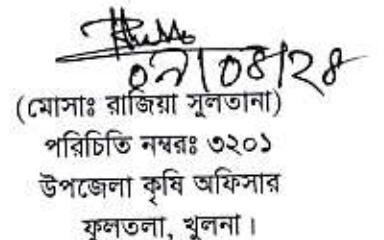 ০৭/০৪/২৪
(মোসাঃ রাজিয়া সুলতানা)
পরিচিতি নম্বরঃ ৩২০১
উপজেলা কৃষি অফিসার
ফুলতলা, খুলনা।